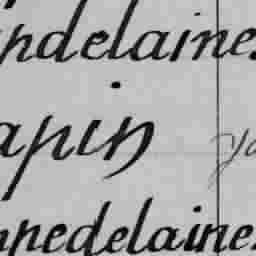 ndelaine.
apin ya
mpedelaine.